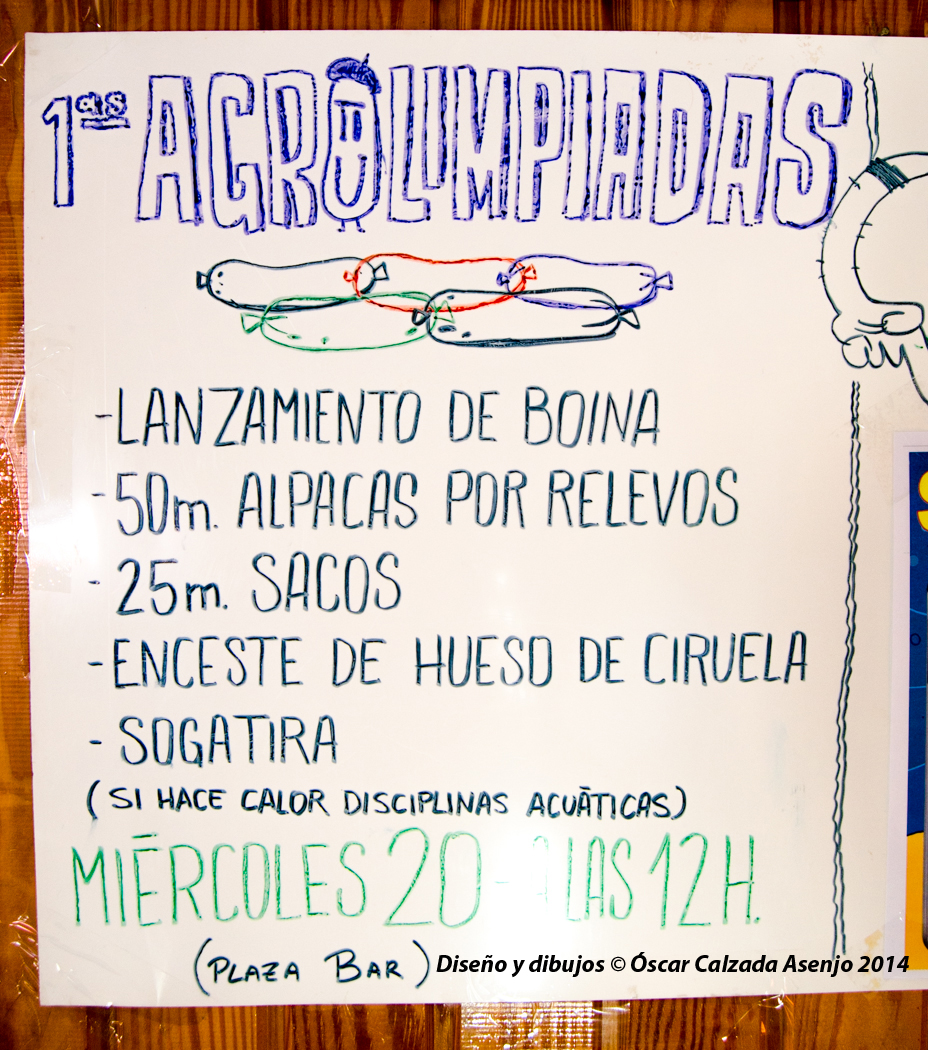 1as AGROLIMPIADAS
-LANZAMIENTO DE BOINA
-50m. ALPACAS POR RELEVOS
-25m. SACOS
-ENCESTE DE HUESO DE CIRUELA
-SOGATIRA
(SI HACE CALOR DISCIPLINAS ACUÁTICAS)
MIÉRCOLES 20 - A LAS 12H.
(PLAZA BAR)
Diseño y dibujos © Óscar Calzada Asenjo 2014